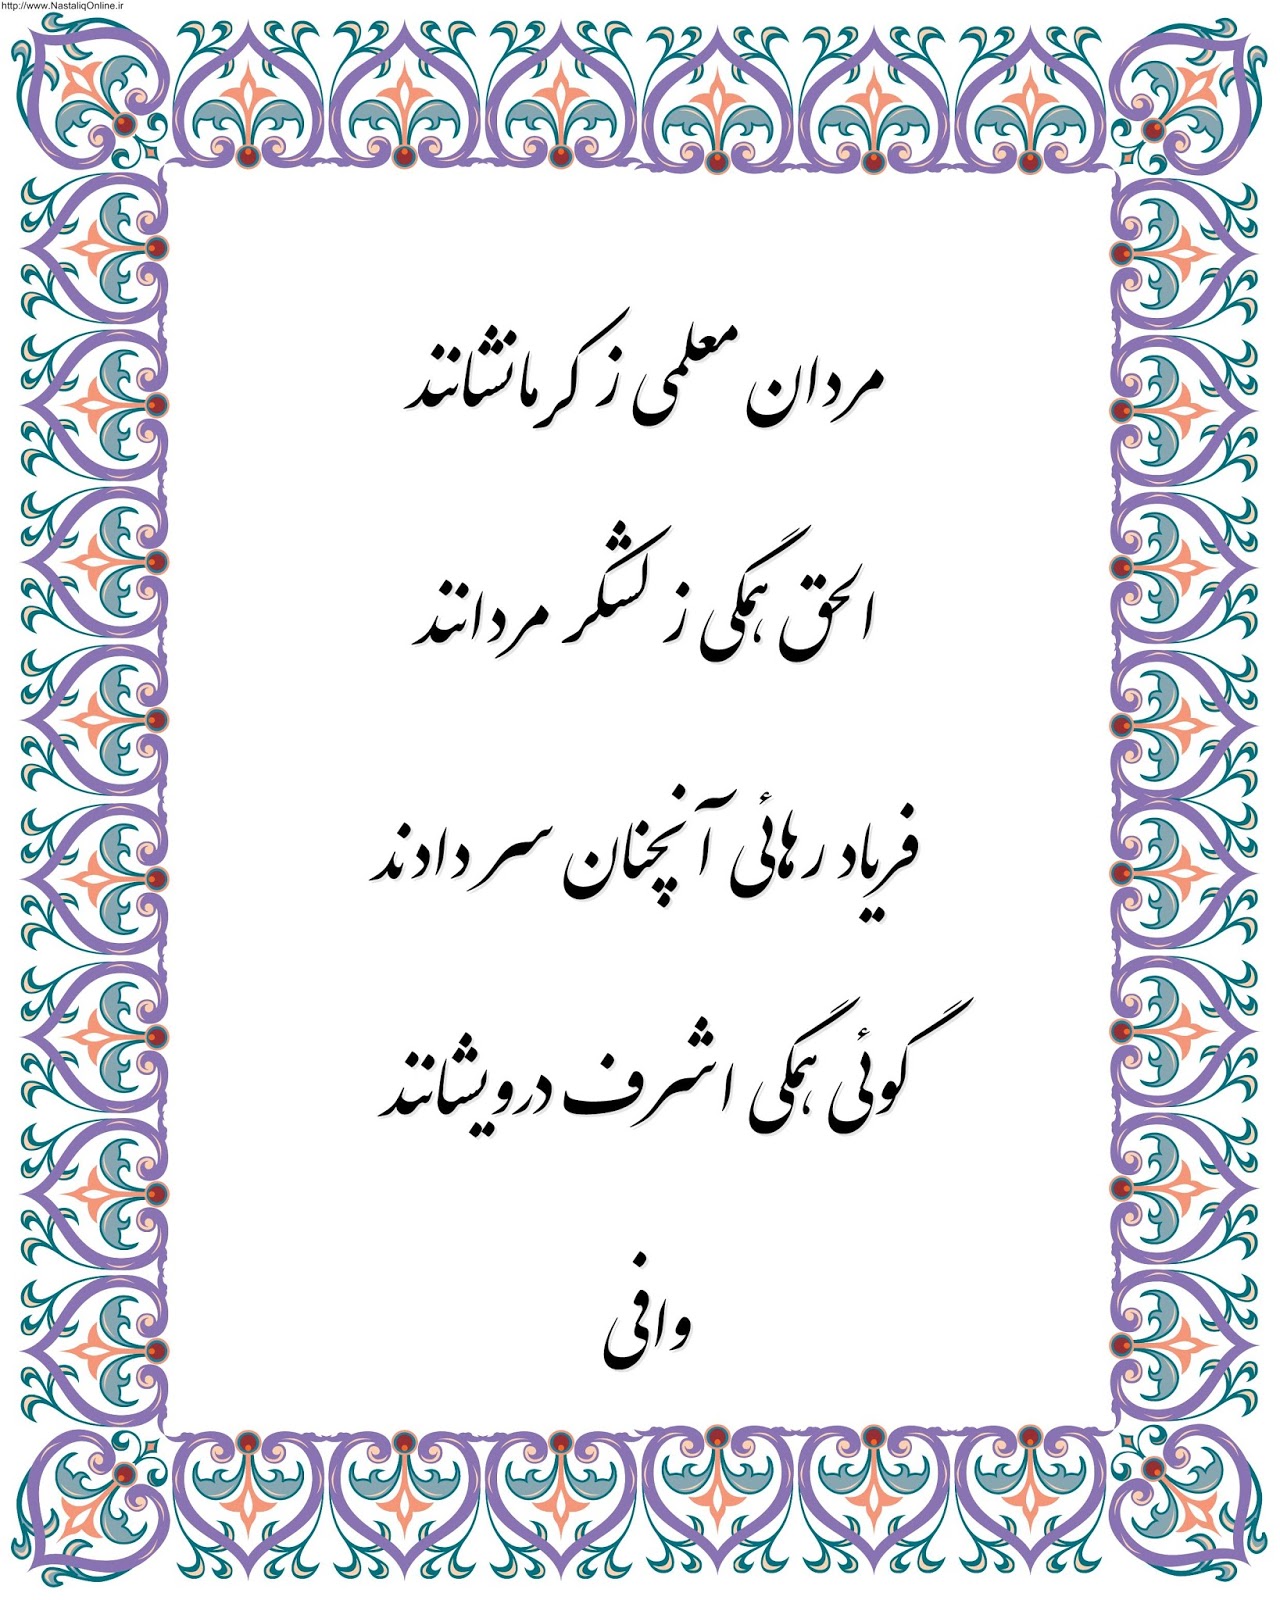 http://www.NastaliqOnline.ir
مردان معلمی ز کرمانشانند
الحق همگی ز لشگر مردانند
فریاد رهائی آنچنان سر دادند
گوئی همگی اشرف درویشانند
وافی